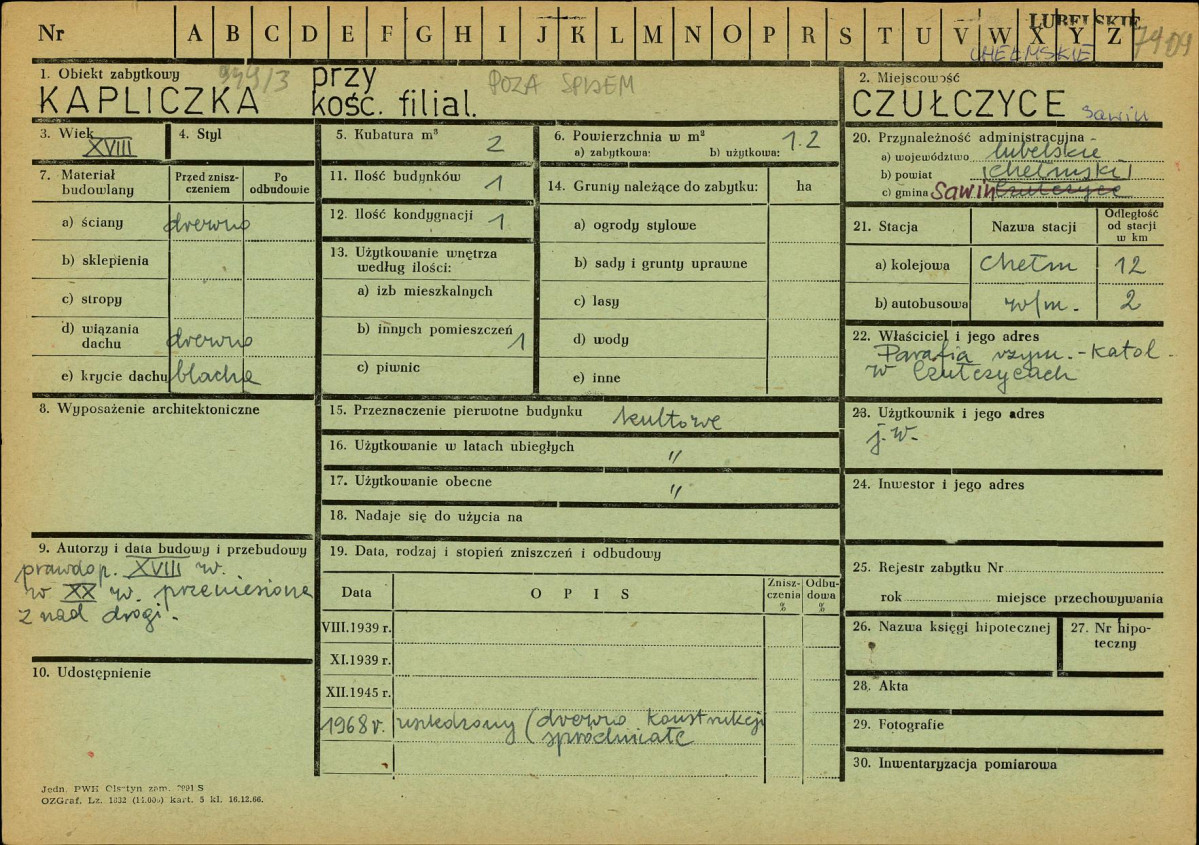 Nr A B C D E F G H I J K L M N O P R S T U V W X Y Z
LUBELSKIE
CHEŁMSKIE
7909
1. Obiekt zabytkowy
KAPLICZKA przy
kość. filial.
POZA SPISEM
2. Miejscowość
CZUŁCZYCE Sawin
3. Wiek
XVIII
4. Styl
5. Kubatura m³
2
6. Powierzchnia w m²
a) zabytkowa: b) użytkowa: 1.2
7. Materiał budowlany
Przed zniszczeniem
Po odbudowie
a) ściany drewno
b) sklepienia
c) stropy
d) wiązania
dachu drewno
e) krycie dachu blacha
11. Ilość budynków 1
12. Ilość kondygnacji 1
13. Użytkowanie wnętrza
według ilości:
a) izb mieszkalnych
b) innych pomieszczeń 1
c) piwnic
14. Grunty należące do zabytku: ha
a) ogrody stylowe
b) sady i grunty uprawne
c) lasy
d) wody
e) inne
20. Przynależność administracyjna -
a) województwo lubelskie
b) powiat chełmski
c) gmina Sawin Czułczyce
21. Stacja Nazwa stacji Odległość
od stacji
w km
a) kolejowa Chełm 12
b) autobusowa w/m. 2
22. Właściciel i jego adres
Parafia rzym.-katol.
w Czułczycach
23. Użytkownik i jego adres
j.w.
24. Inwestor i jego adres
8. Wyposażenie architektoniczne
15. Przeznaczenie pierwotne budynku kultowe
16. Użytkowanie w latach ubiegłych "
17. Użytkowanie obecne "
18. Nadaje się do użycia na
9. Autorzy i data budowy i przebudowy
prawdop. XVIII w.
w XX w. przeniesiona
z nad drogi.
10. Udostępnienie
19. Data, rodzaj i stopień zniszczeń i odbudowy
Data OPIS Zniszczenia % Odbudowa %
VIII.1939 r.
XI.1939 r.
XII.1945 r.
1968 r. uszkodzony (drewno konstrukcji
spróchniałe
25. Rejestr zabytku Nr
rok miejsce przechowywania
26. Nazwa księgi hipotecznej
27. Nr hipo-
teczny
28. Akta
29. Fotografie
30. Inwentaryzacja pomiarowa
Jedn. PWH Olsztyn zam.
OZGraf. Lz. 1632 kart. 5 kl. 16.12.66.